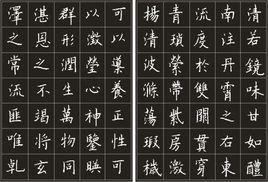 清若鏡味甘如醴
南注丹霄之右東
流度於雙闕貫穿
青瑣縈帶紫房激
揚清波滌蕩瑕穢
可以導養正性可
以澂瑩心神鑒暎
群形潤生萬物同
湛恩之不竭將玄
澤之常流匪唯乾